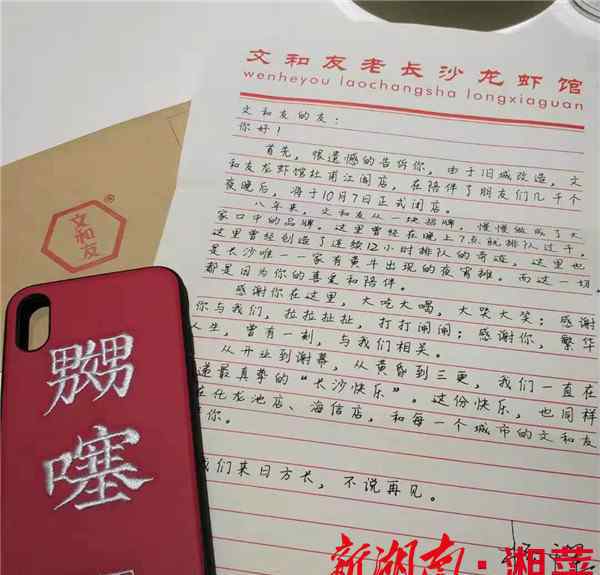 文和友老长沙龙虾馆
wenheyou laochangsha longxiaguan
文和友的友：
你好！
首先，很遗憾的告诉你，由于旧城改造，文
和友龙虾馆杜甫江阁店，在陪伴了朋友们几千个
夜晚后，将于10月7日正式闭店。
八年来，文和友从一块招牌，慢慢做成了大
家口中的品牌。这里曾经在晚上7点就排队过千，
这里曾经创造了连续12小时排队的奇迹，这里也
是长沙唯一一家有黄牛出现的夜宵摊。而这一切
都是因为你的喜爱和陪伴。
感谢你在这里，大吃大喝，大哭大笑；感谢
你与我们，拉拉扯扯，打打闹闹；感谢你，繁华
人生，曾有一刻，与我们相关。
从开业到谢幕，从黄昏到三更，我们一直在
递最真挚的“长沙快乐”。这份快乐，也同样
在化龙池店、海信店，和每一个城市的文和友
你。
我们来日方长，不说再见。
文和友®
嬲
噻
新湖南·湘